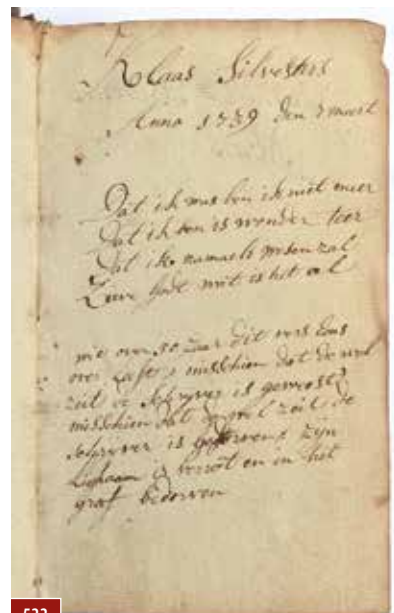 Klaas Silvesters
Anno 1739 den 7 meert
Dat ik was ben ik niet meer
Dat ik ben is wonder teer
Dat ik namaels wesen zal
Lieve godt wiet is het al
wie over 50 Jaer dit vers Eens
over Laest misschien dat de wel
zeit de schryver is geweest
misschien dat wel zeit de
schryver is gestorven zijn
Lighaam is verrot en in het
graf bedorven
533